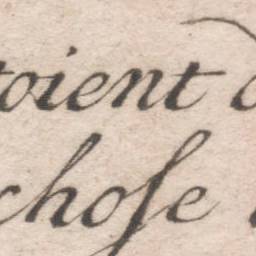 toient d
chose